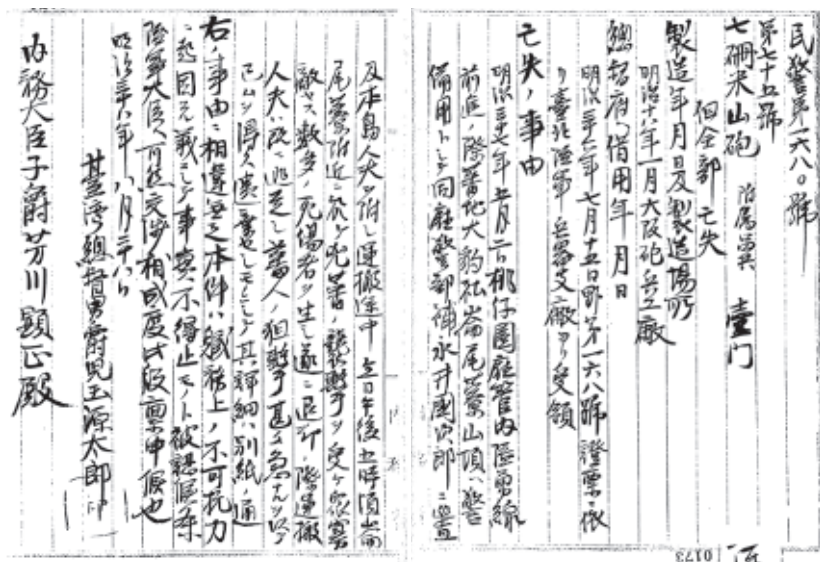 民警第一六八〇號
第七十五號
七珊米山砲 附属具 壹门
但全部亡失
製造年月日及製造場所
明治十六年一月大阪砲兵工廠
總督府へ借用年月日
明治三十六年七月十五日野第一六八號證票ニ依
リ臺北陸軍兵器支廠ヨリ受領
亡失ノ事由
明治三十七年五月二日桃仔園廳管内隘勇線
前進ノ際蕃地大豹社崙尾藔山頂ヘ警
備用トシテ同廳警部補永井國次郎ニ
及本島人夫ヲ付シ運搬途中五日午後五時頃崙
尾藔附近ニ於テ兇蕃ノ襲撃ヲ受ケ衆寡
敵セス数多ノ死傷者ヲ生シ遂ニ退却ノ際運搬
人夫ハ逃走シ蕃人ノ狙撃甚タ急ナルヲ以テ
其詳細ハ別紙ノ通
右ノ事由ニ相違無之本件ハ職務上ノ不可抗力
ニ起因スル義ニシテ事実不得止モノト被認候条
陸軍大臣ヘ可然交渉相成度此段禀申候也
明治三十八年八月二十八日
臺灣總督男爵児玉源太郎 印
内務大臣子爵芳川顕正殿
0173